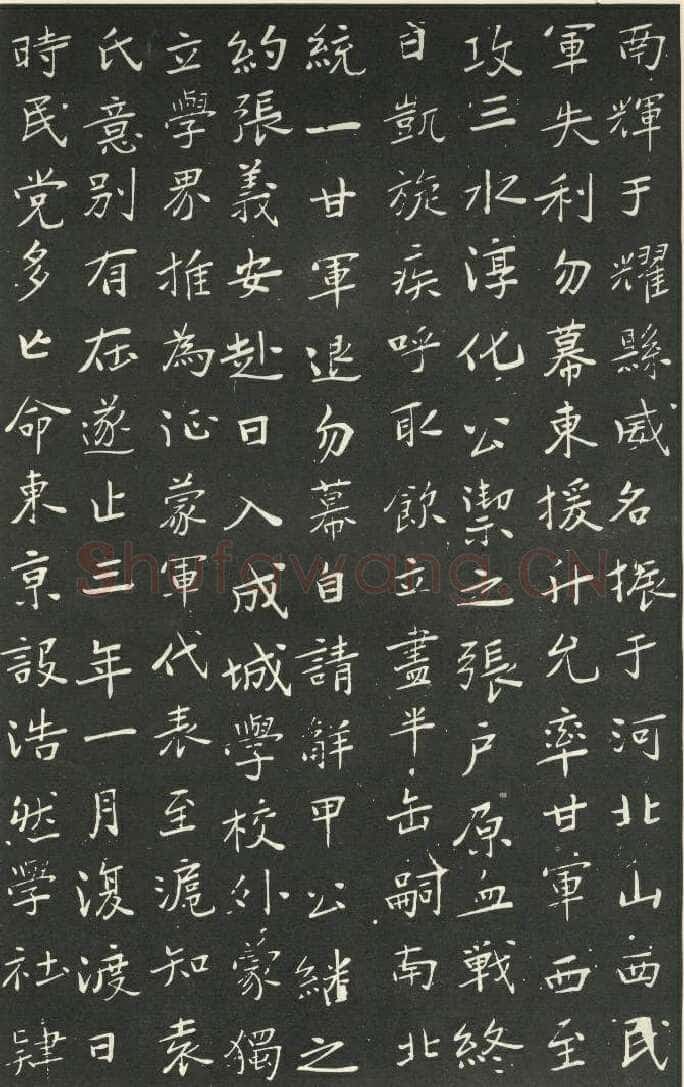 輝于耀縣威名振于河北山西民
軍失利勿幕東援升允率甘軍西至
攻三水淳化公禦之張户原血戰終
日凱旋疾呼取飲立盡半缶嗣南北
統一甘軍退勿幕自請解甲公繼之
約張義安赴日入成城學校外蒙獨
立學界推為征蒙軍代表至滬知袁
氏意別有在遂止三年一月復渡日
時民党多亡命東京設浩然學社肄
Shufawang.CN